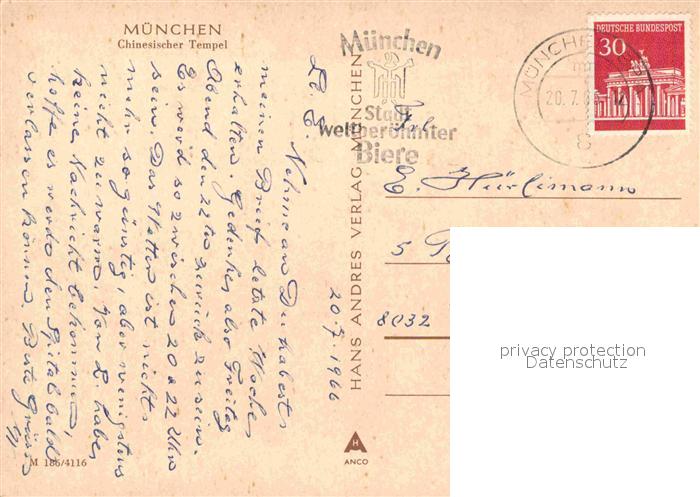 MÜNCHEN
Chinesischer Tempel
20.7.1966
L. E.
Nehme an Du habest
meinen Brief letzte Woche
erhalten. Gedenke also Freitag
Abend den 22ten zurück zu sein.
Es wird so zwischen 20 & 22 Uhr
sein. Das Wetter ist nicht
mehr so günstig, aber wenigstens
nicht zu warm. Von L. habe
keine Nachricht bekommen,
hoffe es werde den Spital bald
verlassen können. Beste Grüsse
M 186/4116
HANS ANDRES VERLAG MÜNCHEN
H
A
ANCO
München
Stadt
weltberühmter
Biere
MÜNCHEN
20.7.66
8
DEUTSCHE BUNDESPOST
30
Frl.
E. Hürlimann
5
8032
privacy protection
Datenschutz